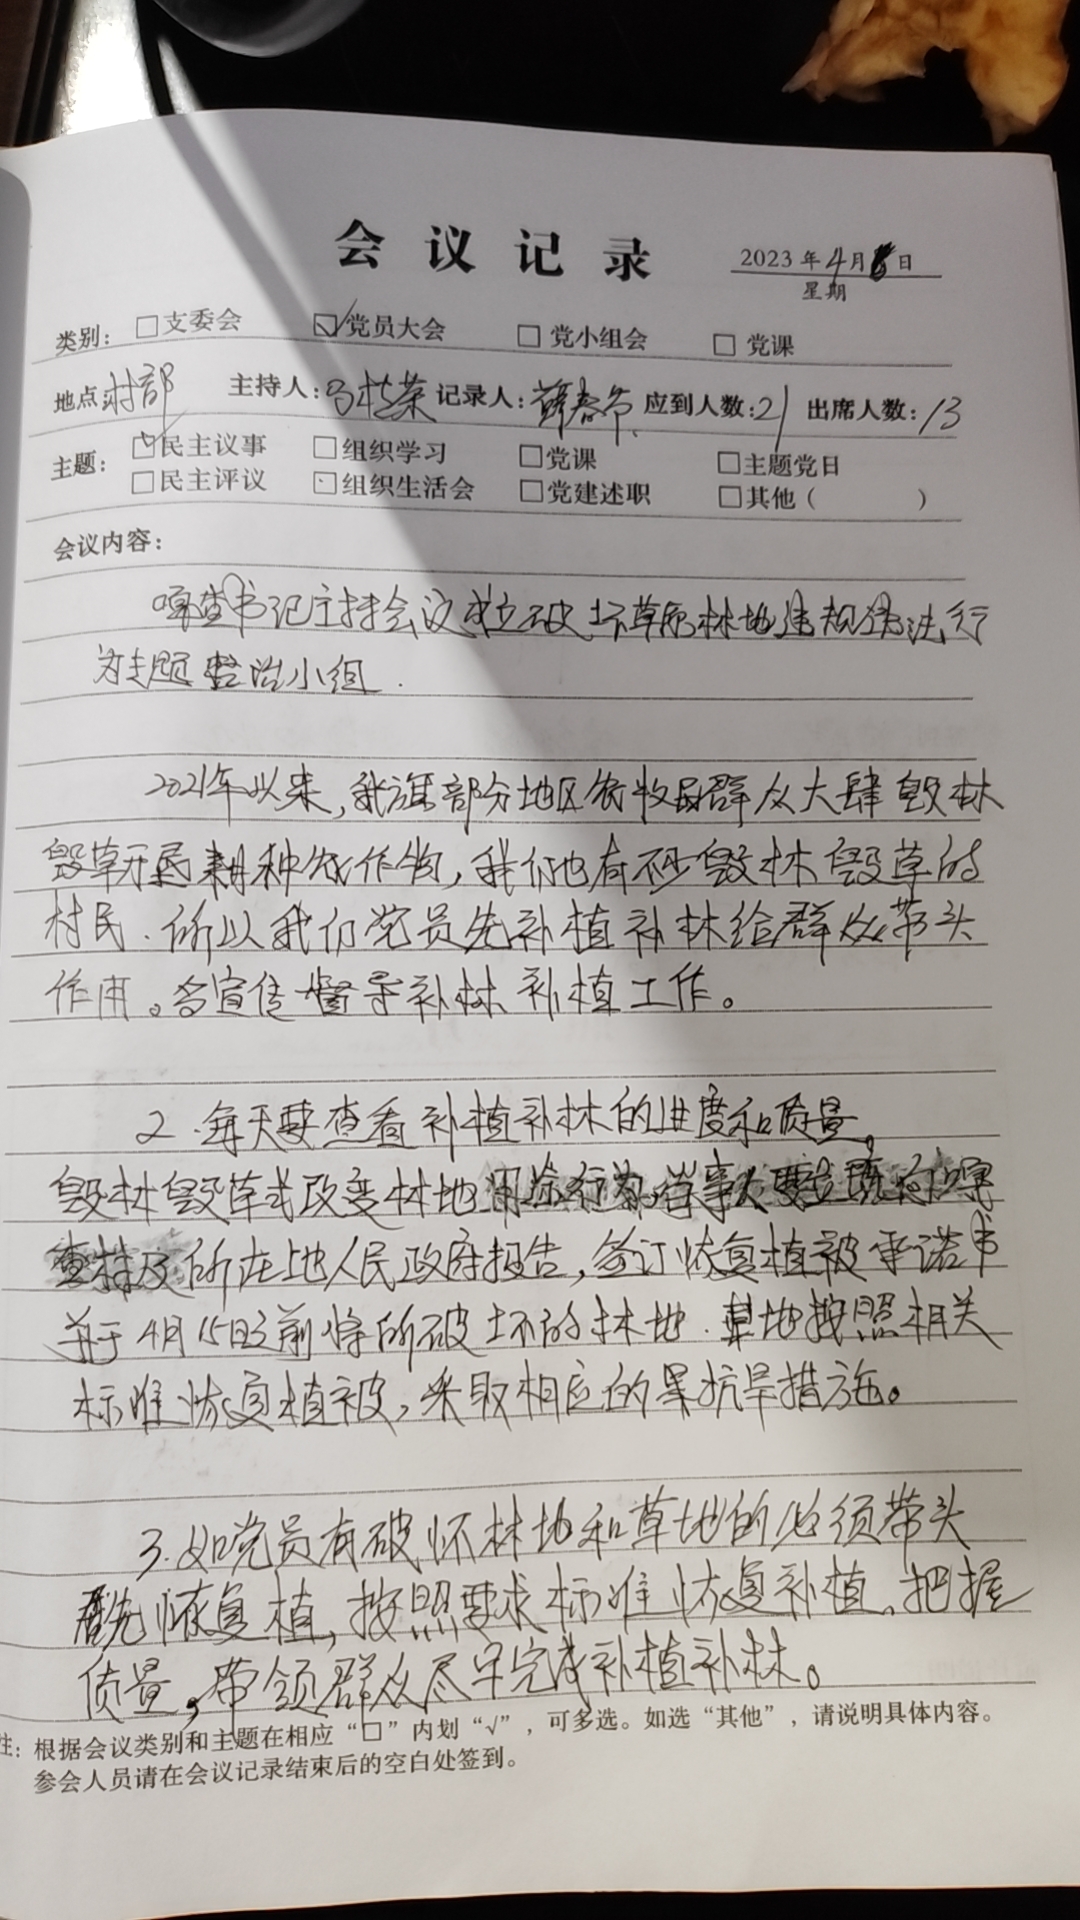 会议记录
2023年4月日
星期
类别: □支委会 ☑党员大会 □党小组会 □党课
地点 村部 主持人: 记录人: 薛春 应到人数: 21 出席人数: 13
主题: ☑民主议事 □组织学习 □党课 □主题党日
□民主评议 □组织生活会 □党建述职 □其他( )
会议内容:
嘎查书记主持会议成立破坏草原林地违规违法行
为专题整治小组.
2021年以来,我旗部分地区农牧民群众大肆毁林
毁草开垦耕种农作物,我们也有不少毁林毁草的
村民.所以我们党员先补植补林给群众带头
作用。宣传督导补林补植工作。
2.每天要查看补植补林的进度和质量。
毁林毁草或改变林地用途行为,当事人要立即向嘎
查村及所在地人民政府报告,签订恢复植被承诺书
并于4月15日之前将所破坏的林地.草地按照相关
标准恢复植被,采取相应的抗旱措施。
3.如党员有破怀林地和草地的必须带头
先恢复植,按照要求标准恢复补植,把握
质量,带领群众尽早完成补植补林。
注: 根据会议类别和主题在相应“□”内划“√”,可多选。如选“其他”,请说明具体内容。
参会人员请在会议记录结束后的空白处签到。